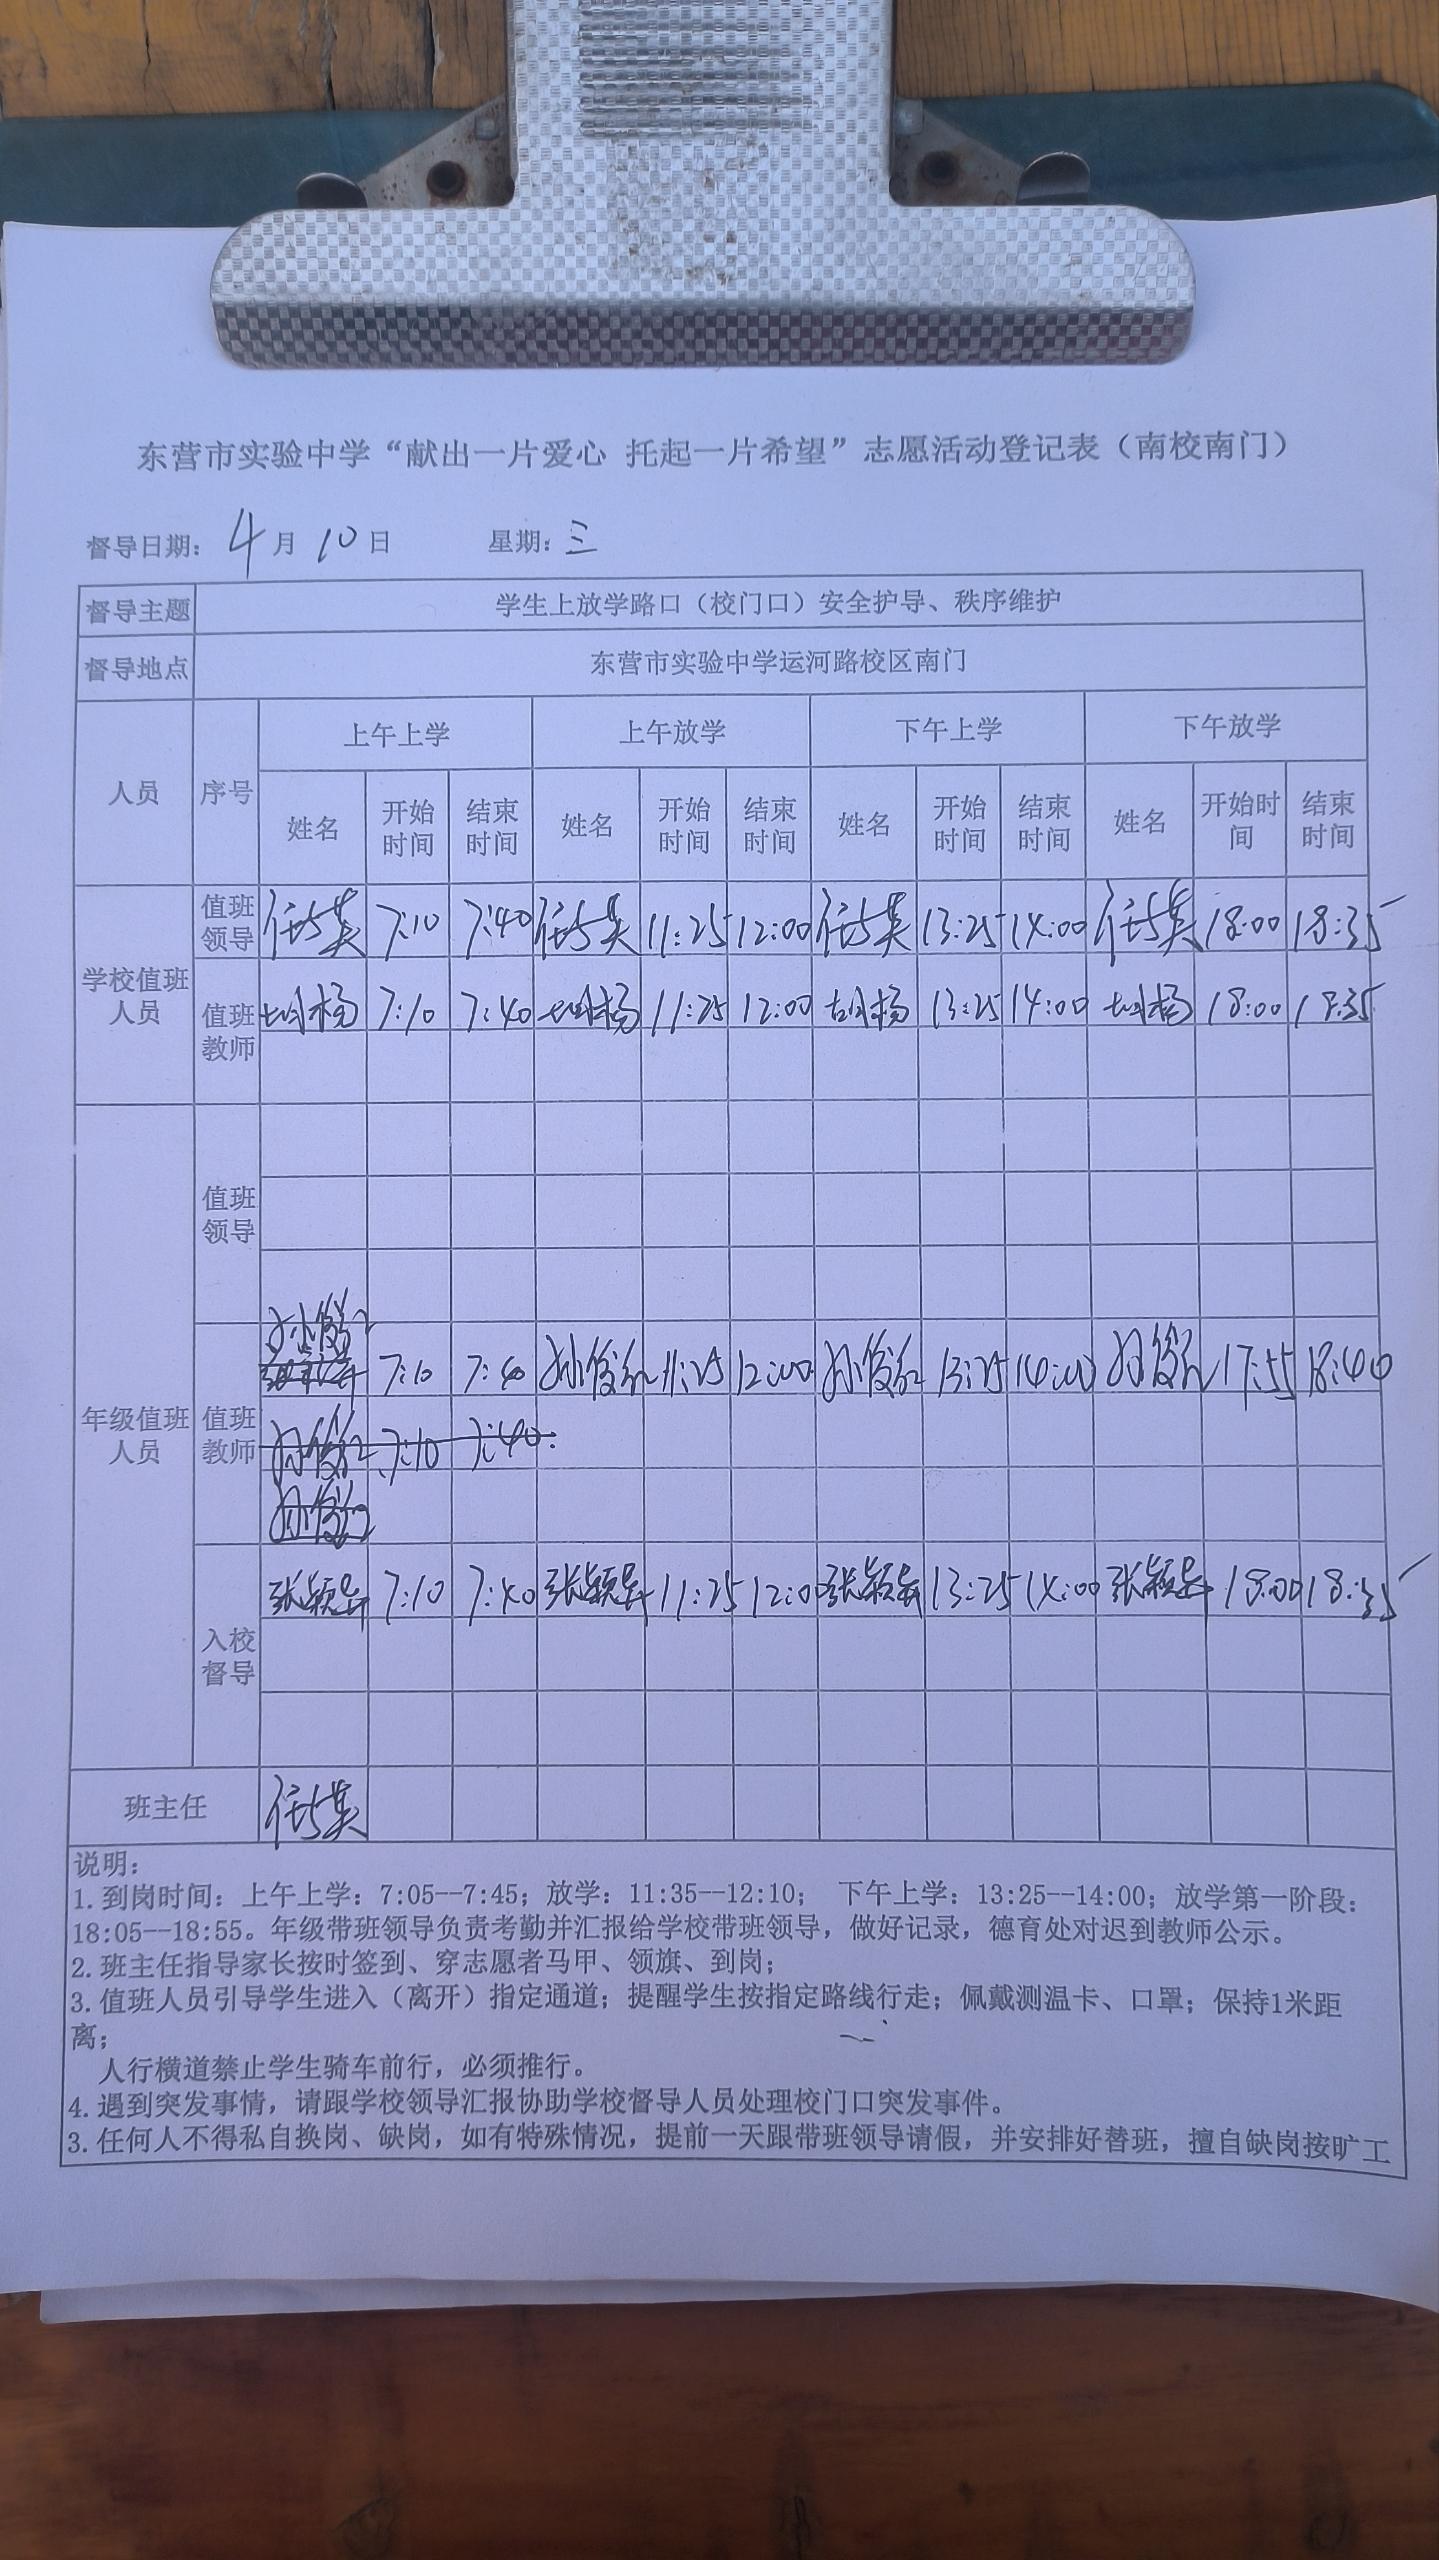 东营市实验中学“献出一片爱心 托起一片希望”志愿活动登记表（南校南门）
督导日期：4月10日 星期：三
督导主题 学生上放学路口（校门口）安全护导、秩序维护
督导地点 东营市实验中学运河路校区南门
人员 序号 上午上学 上午放学 下午上学 下午放学
姓名 开始时间 结束时间 姓名 开始时间 结束时间 姓名 开始时间 结束时间 姓名 开始时间 结束时间
学校值班人员
值班领导 7:10 7:40 11:25 12:00 13:25 14:00 18:00 18:35
值班教师 胡杨 7:10 7:40 胡杨 11:25 12:00 胡杨 13:25 14:00 胡杨 18:00 18:35
年级值班人员
值班领导
值班教师 孙俊红 7:10 7:40 孙俊红 11:25 12:00 孙俊红 13:25 14:00 孙俊红 17:55 18:40
孙俊红 7:10 7:40
孙俊红
入校督导 7:10 7:40 11:25 12:00 13:25 14:00 18:00 18:35
班主任
说明：
1.到岗时间：上午上学：7:05--7:45；放学：11:35--12:10； 下午上学：13:25--14:00；放学第一阶段：
18:05--18:55。年级带班领导负责考勤并汇报给学校带班领导，做好记录，德育处对迟到教师公示。
2.班主任指导家长按时签到、穿志愿者马甲、领旗、到岗；
3.值班人员引导学生进入（离开）指定通道；提醒学生按指定路线行走；佩戴测温卡、口罩；保持1米距
离；
人行横道禁止学生骑车前行，必须推行。
4.遇到突发事情，请跟学校领导汇报协助学校督导人员处理校门口突发事件。
3.任何人不得私自换岗、缺岗，如有特殊情况，提前一天跟带班领导请假，并安排好替班，擅自缺岗按旷工